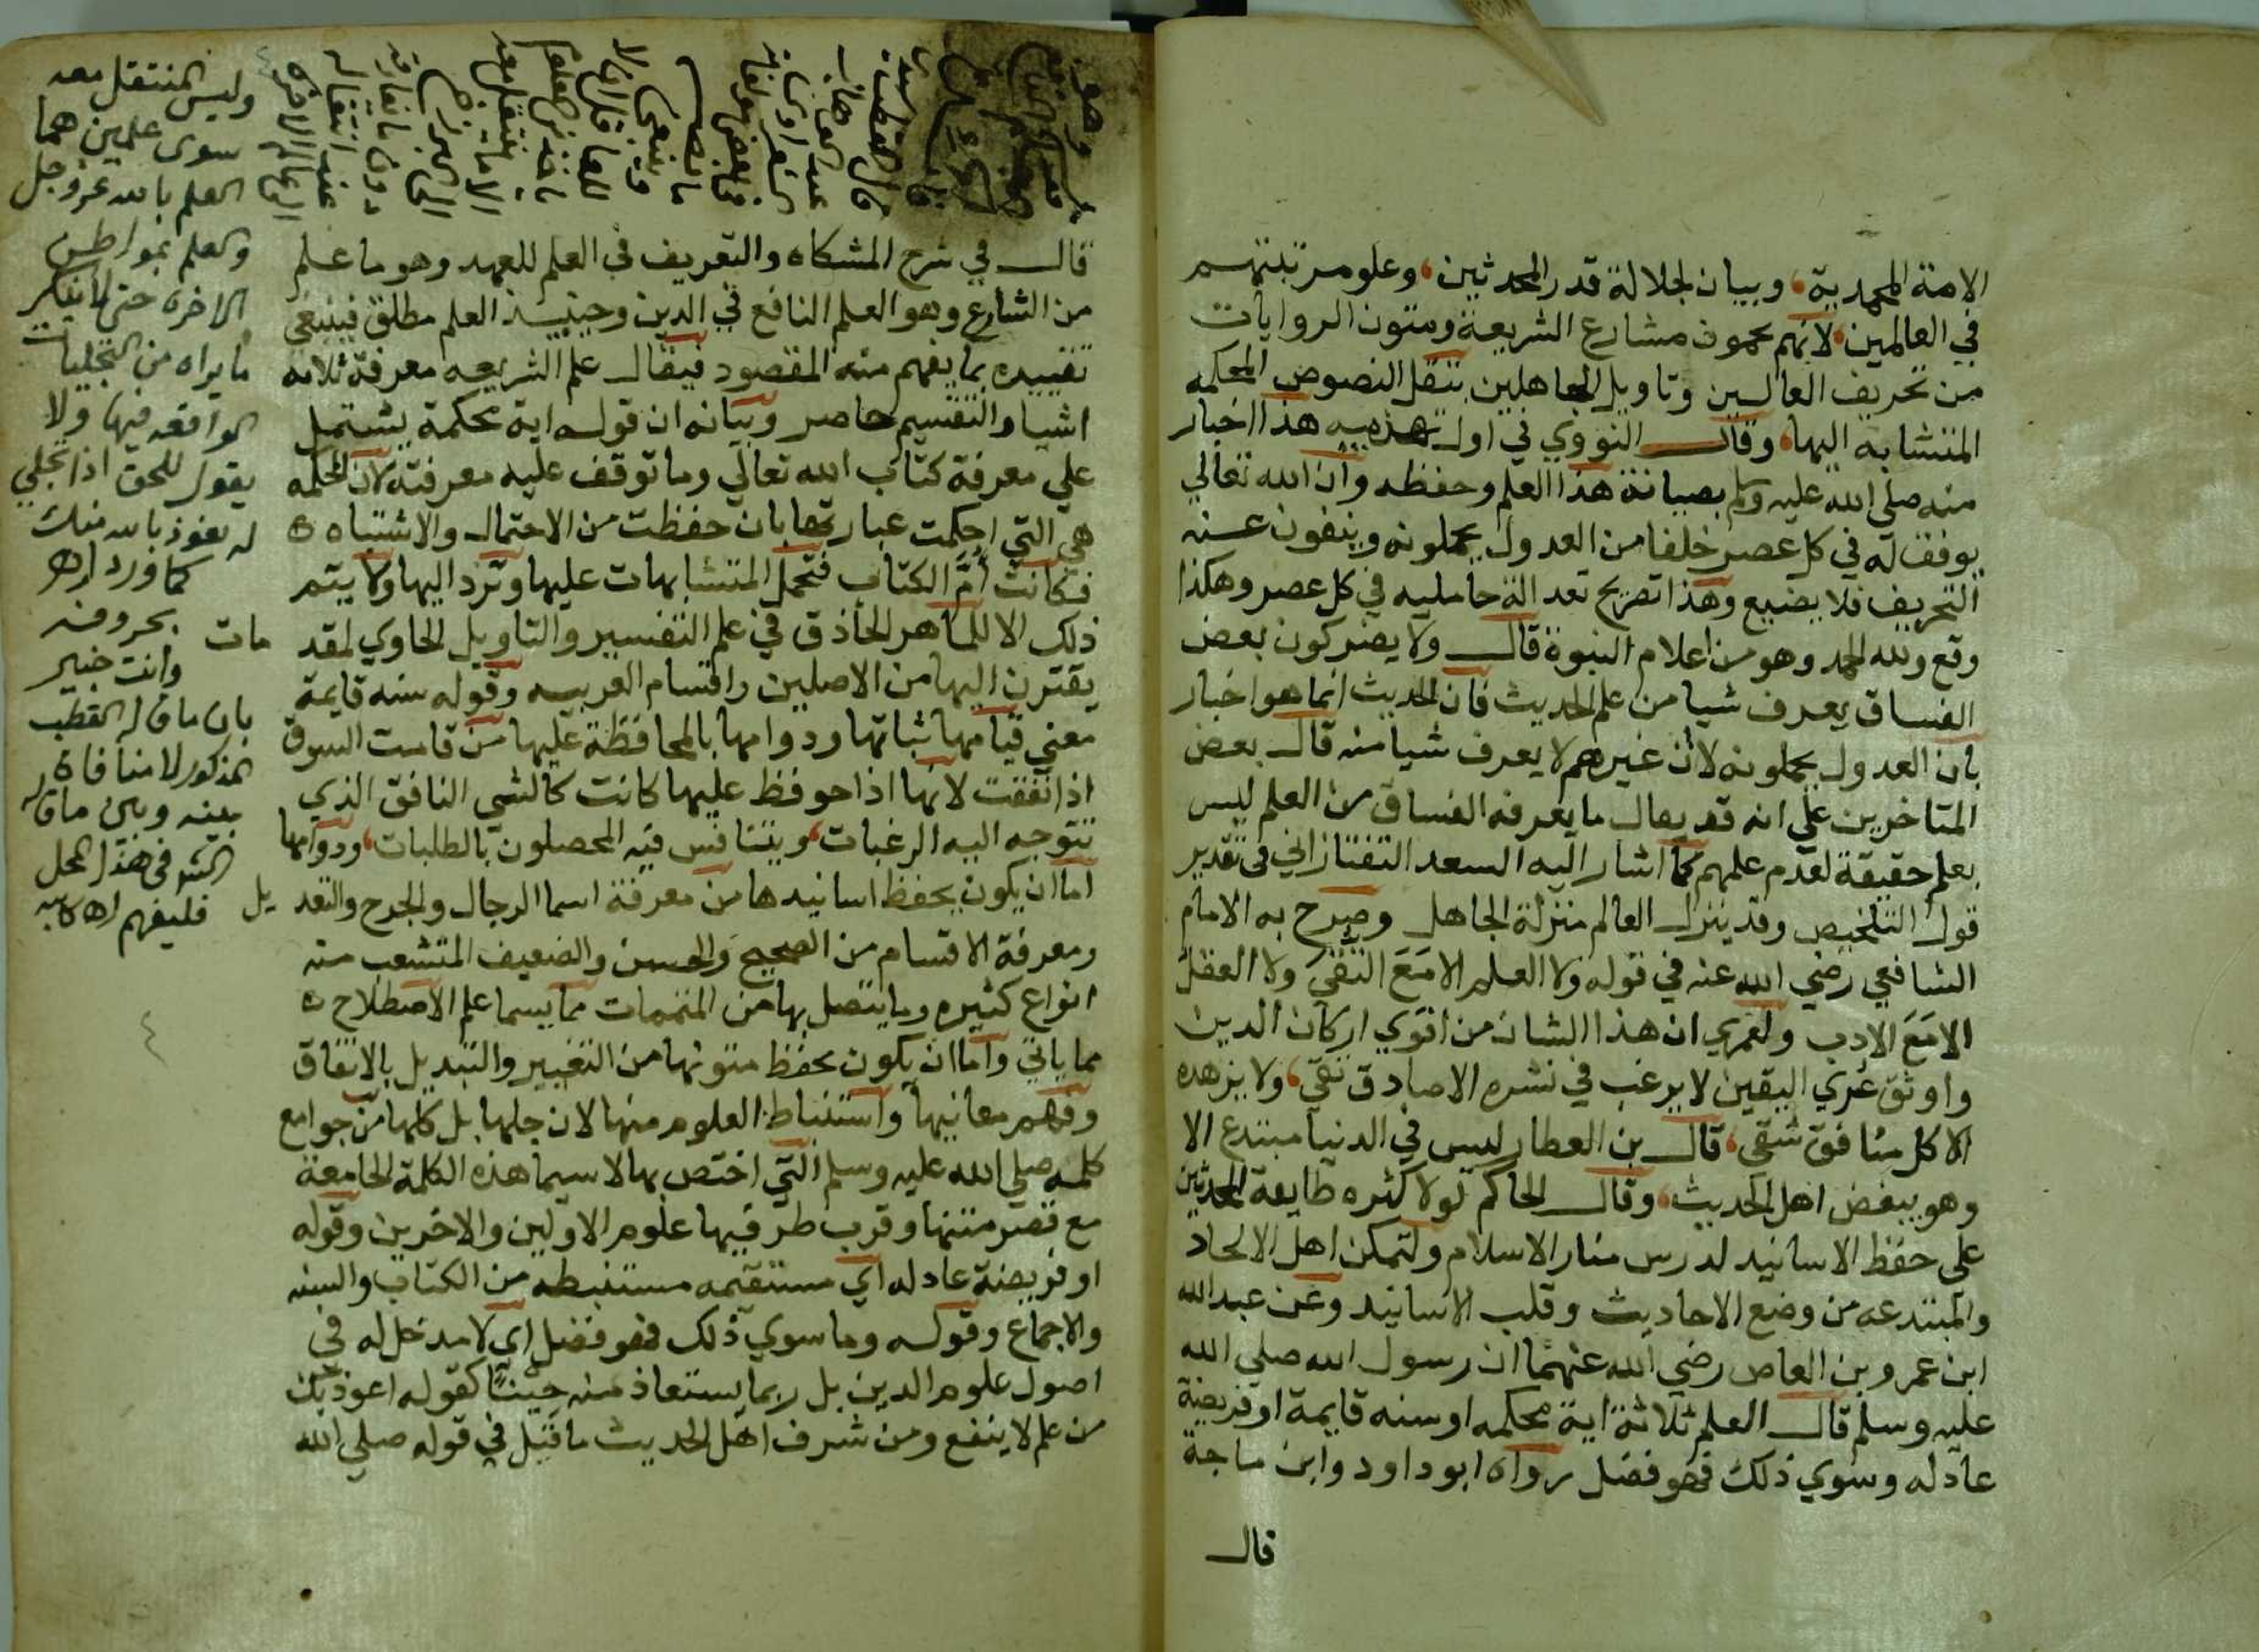 الامة المحمدية، وبيان لجلالة قدر المحدثين، وعلو مرتبتهم
في العالمين، لانهم يحمون مشارع الشريعة ومتون الروايات
من تحريف الغالين وتاويل الجاهلين بنقل النصوص المحكمه
المتشابه اليها، وقال النووي في اول تهذيبه هذا اخبار
منه صلي الله عليه وسلم بصيانة هذا العلم وحفظه وان الله تعالي
يوفق له في كل عصر خلفا من العدول يحملونه وينفون عنه
التحريف فلا يضيع وهذا تصريح بعدالة حامليه في كل عصر وهكذا
وقع ولله الحمد وهو من اعلام النبوة قال ولا يضر كون بعض
الفساق يعرف شيا من علم الحديث فان الحديث انما هو اخبار
بان العدول يحملونه لا ان غيرهم لا يعرف شيا منه قال بعض
المتاخرين علي انه قد يقال ما يعرفه الفساق من العلم ليس
بعلم حقيقة لعدم علمهم كما اشار اليه السعد التفتازاني في تقدير
قول التلخيص وقد ينزل العالم منزلة الجاهل وصرح به الامام
الشافعي رضي الله عنه في قوله ولا العلم الا مَعَ التقي ولا العقل
الا مَعَ الادب ولعمري ان هذا الشان من اقوي اركان الدين
واوثق عُري اليقين لا يرغب في نشره الا صادق تقي، ولا يزهده
الا كل منافق شقي، قال بن العطار ليس في الدنيا مبتدع الا
وهو يبغض اهل الحديث، وقال الحاكم لولا كثره طايفة المحدثين
علي حفظ الاسانيد لدرس منار الاسلام ولتمكن اهل الالحاد
والمبتدعه من وضع الاحاديث وقلب الاسانيد وعن عبد الله
ابن عمرو بن العاص رضي الله عنهما ان رسول الله صلي الله
عليه وسلم قال العلم ثلاثة اية محكمه او سنه قايمة او فريضة
عادله وسوي ذلك فهو فضل رواه ابو داود وابن ماجة
قال
قال في شرح المشكاه والتعريف في العلم للعهد وهو ما علم
من الشارع وهو العلم النافع في الدين وحينيذ العلم مطلق فينبغي
تقييده بما يفهم منه المقصود فيقال علم الشريعه معرفة ثلاثة
اشيا والتقسيم حاصر وبيانه ان قوله اية محكمة يشتمل
علي معرفة كتاب الله تعالي وما توقف عليه معرفته لان المحكمه
هي التي احكمت عبارتها بان حفظت من الاحتمال والاشتباه
فكانت اُمّ الكتاب فتحمل المتشابهات عليها وترد اليها ولا يتم
ذلك الا للماهر الحاذق في علم التفسير والتاويل الحاوي لمقد مات
يفتقرن اليها من الاصلين واقسام العربيه وقوله سنه قايمة
معني قيامها ثباتها ودوامها بالمحافظة عليها من قامت السوق
اذا نفقت لانها اذا حوفظ عليها كانت كالشي النافق الذي
تتوجه اليه الرغبات، ويتنافس فيه المحصلون بالطلبات، ودوامها
اما ان يكون بحفظ اسانيدها من معرفة اسما الرجال والجرح والتعد يل
ومعرفة الاقسام من الصحيح والحسن والضعيف المتشعب منه
انواع كثيره وما يتصل بها من المتممات مما يسما علم الاصطلاح
مما ياتي واما ان يكون بحفظ متونها من التغيير والتبديل بالاتفاق
وفهم معانيها واستنباط العلوم منها لان جلها بل كلها من جوامع
كلمه صلي الله عليه وسلم التي اختص بها لا سيما هذه الكلمة الجامعة
مع قصر متنها وقرب طرفيها علوم الاولين والاخرين وقوله
او فريضة عادله اي مستقيمه مستنبطه من الكتاب والسنه
والاجماع وقوله وما سوي ذلك فهو فضل اي لا مدخل له في
اصول علوم الدين بل ربما يستعاذ منه حينًا كقوله اعوذ بك
من علم لا ينفع ومن شرف اهل الحديث ما قيل في قوله صلي الله
وليس المنتقل معه
سوى علمين هما
العلم بالله عز وجل
والعلم بمواطن
الاخرة حتى لا ينكر
ما يراه من التجليات
الواقعه فيها ولا
يقول للحق اذا تجلي
له نعوذ بالله منك
كما ورد اهـ
بحروفه
وانت خبير
بان ما قاله القطب
المذكور لا منافاة
بينه وبين ما قاله
في هذا المحل
فليفهم اهـ
٤